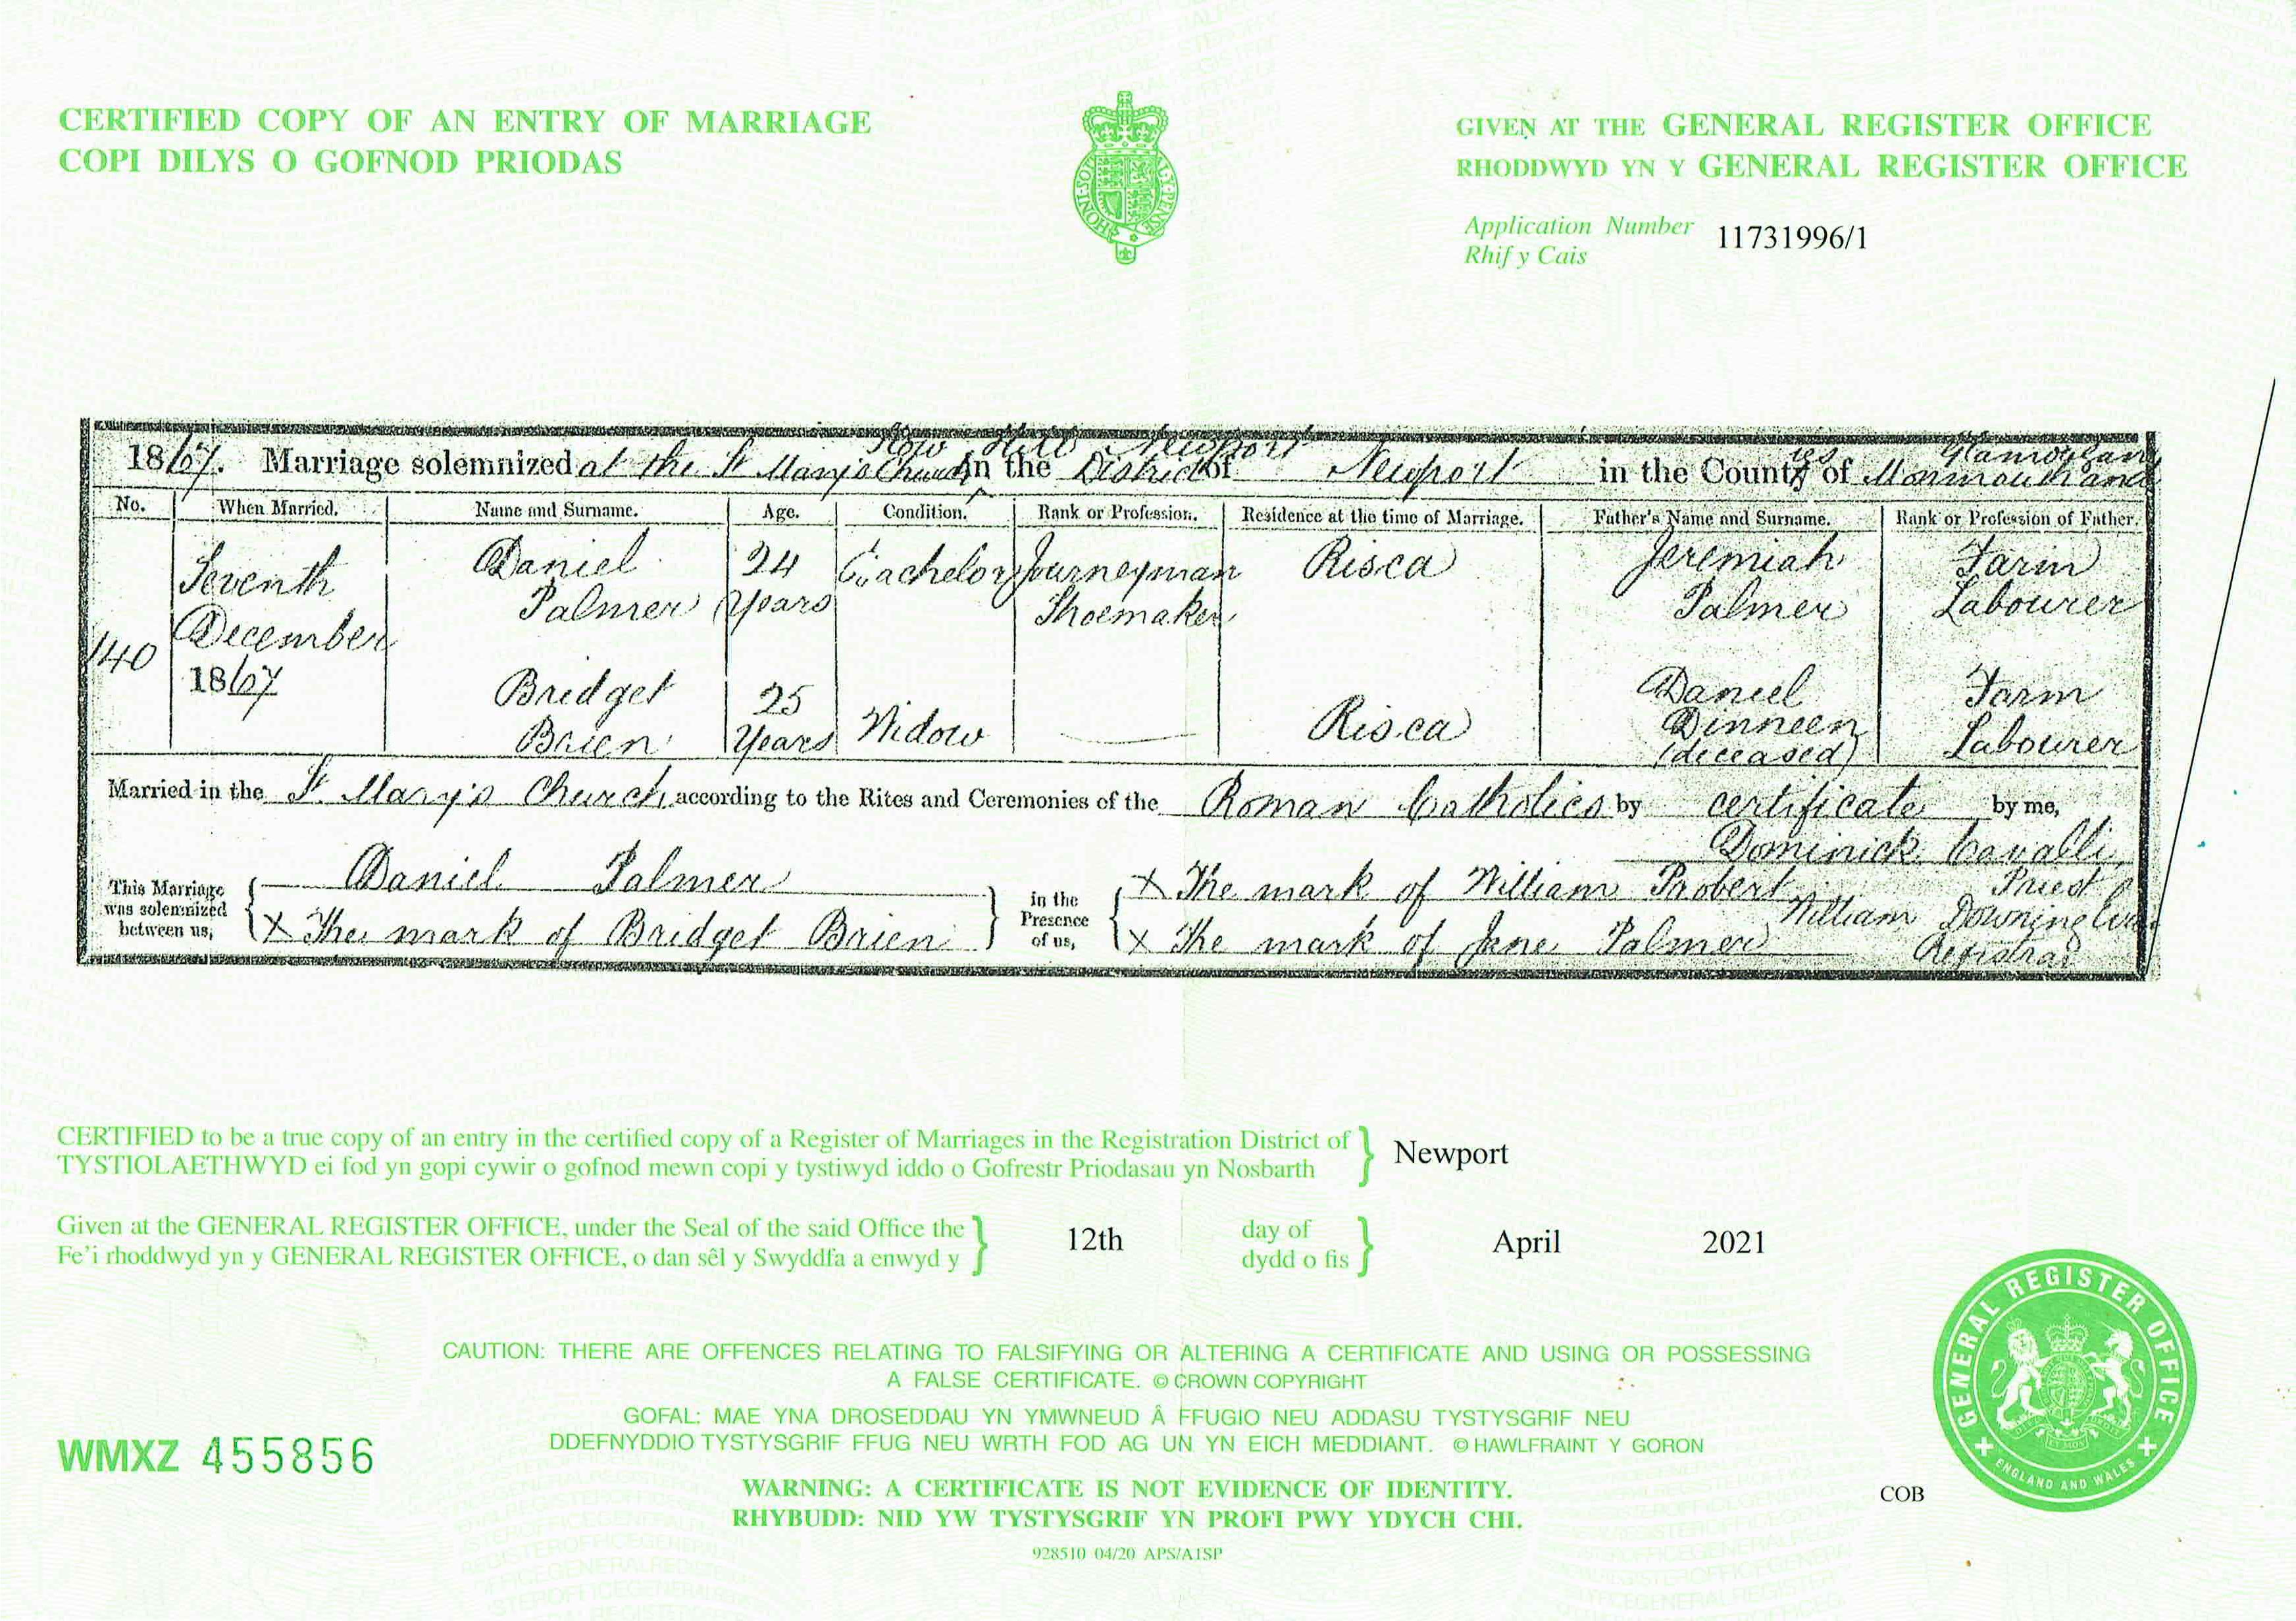 CERTIFIED COPY OF AN ENTRY OF MARRIAGE
COPI DILYS O GOFNOD PRIODAS
GIVEN AT THE GENERAL REGISTER OFFICE
RHODDWYD YN Y GENERAL REGISTER OFFICE
Application Number 11731996/1
Rhif y Cais
HONI SOIT Y PENSE
Stow Hill Newport
Glamorgan
1867. Marriage solemnized at the St Mary's Church in the District of Newport in the Counties of Monmouth and
No. When Married. Name and Surname. Age. Condition. Rank or Profession. Residence at the time of Marriage. Father's Name and Surname. Rank or Profession of Father.
Seventh Daniel 24 Bachelor Journeyman Risca Jeremiah Farm
Palmer Years Shoemaker Palmer Labourer
December
140
1867 Bridget 25 Daniel Farm
Brien Years Widow Risca Dinneen Labourer
(deceased)
Married in the St. Mary's Church according to the Rites and Ceremonies of the Roman Catholics by certificate by me,
Dominick Cavalli
Priest
This Marriage was solemnized between us,
Daniel Palmer
X The mark of Bridget Brien
in the Presence of us,
X The mark of William Probert
X The mark of Jane Palmer
William Downing
Registrar
CERTIFIED to be a true copy of an entry in the certified copy of a Register of Marriages in the Registration District of Newport
TYSTIOLAETHWYD ei fod yn gopi cywir o gofnod mewn copi y tystiwyd iddo o Gofrestr Priodasau yn Nosbarth
Given at the GENERAL REGISTER OFFICE, under the Seal of the said Office the 12th day of April 2021
Fe'i rhoddwyd yn y GENERAL REGISTER OFFICE, o dan sêl y Swyddfa a enwyd y dydd o fis
CAUTION: THERE ARE OFFENCES RELATING TO FALSIFYING OR ALTERING A CERTIFICATE AND USING OR POSSESSING
A FALSE CERTIFICATE. © CROWN COPYRIGHT
GOFAL: MAE YNA DROSEDDAU YN YMWNEUD Â FFUGIO NEU ADDASU TYSTYSGRIF NEU
DDEFNYDDIO TYSTYSGRIF FFUG NEU WRTH FOD AG UN YN EICH MEDDIANT. © HAWLFRAINT Y GORON
WMXZ 455856
WARNING: A CERTIFICATE IS NOT EVIDENCE OF IDENTITY.
RHYBUDD: NID YW TYSTYSGRIF YN PROFI PWY YDYCH CHI.
COB
928510 04/20 APS/A1SP
GENERAL REGISTER OFFICE
ENGLAND AND WALES